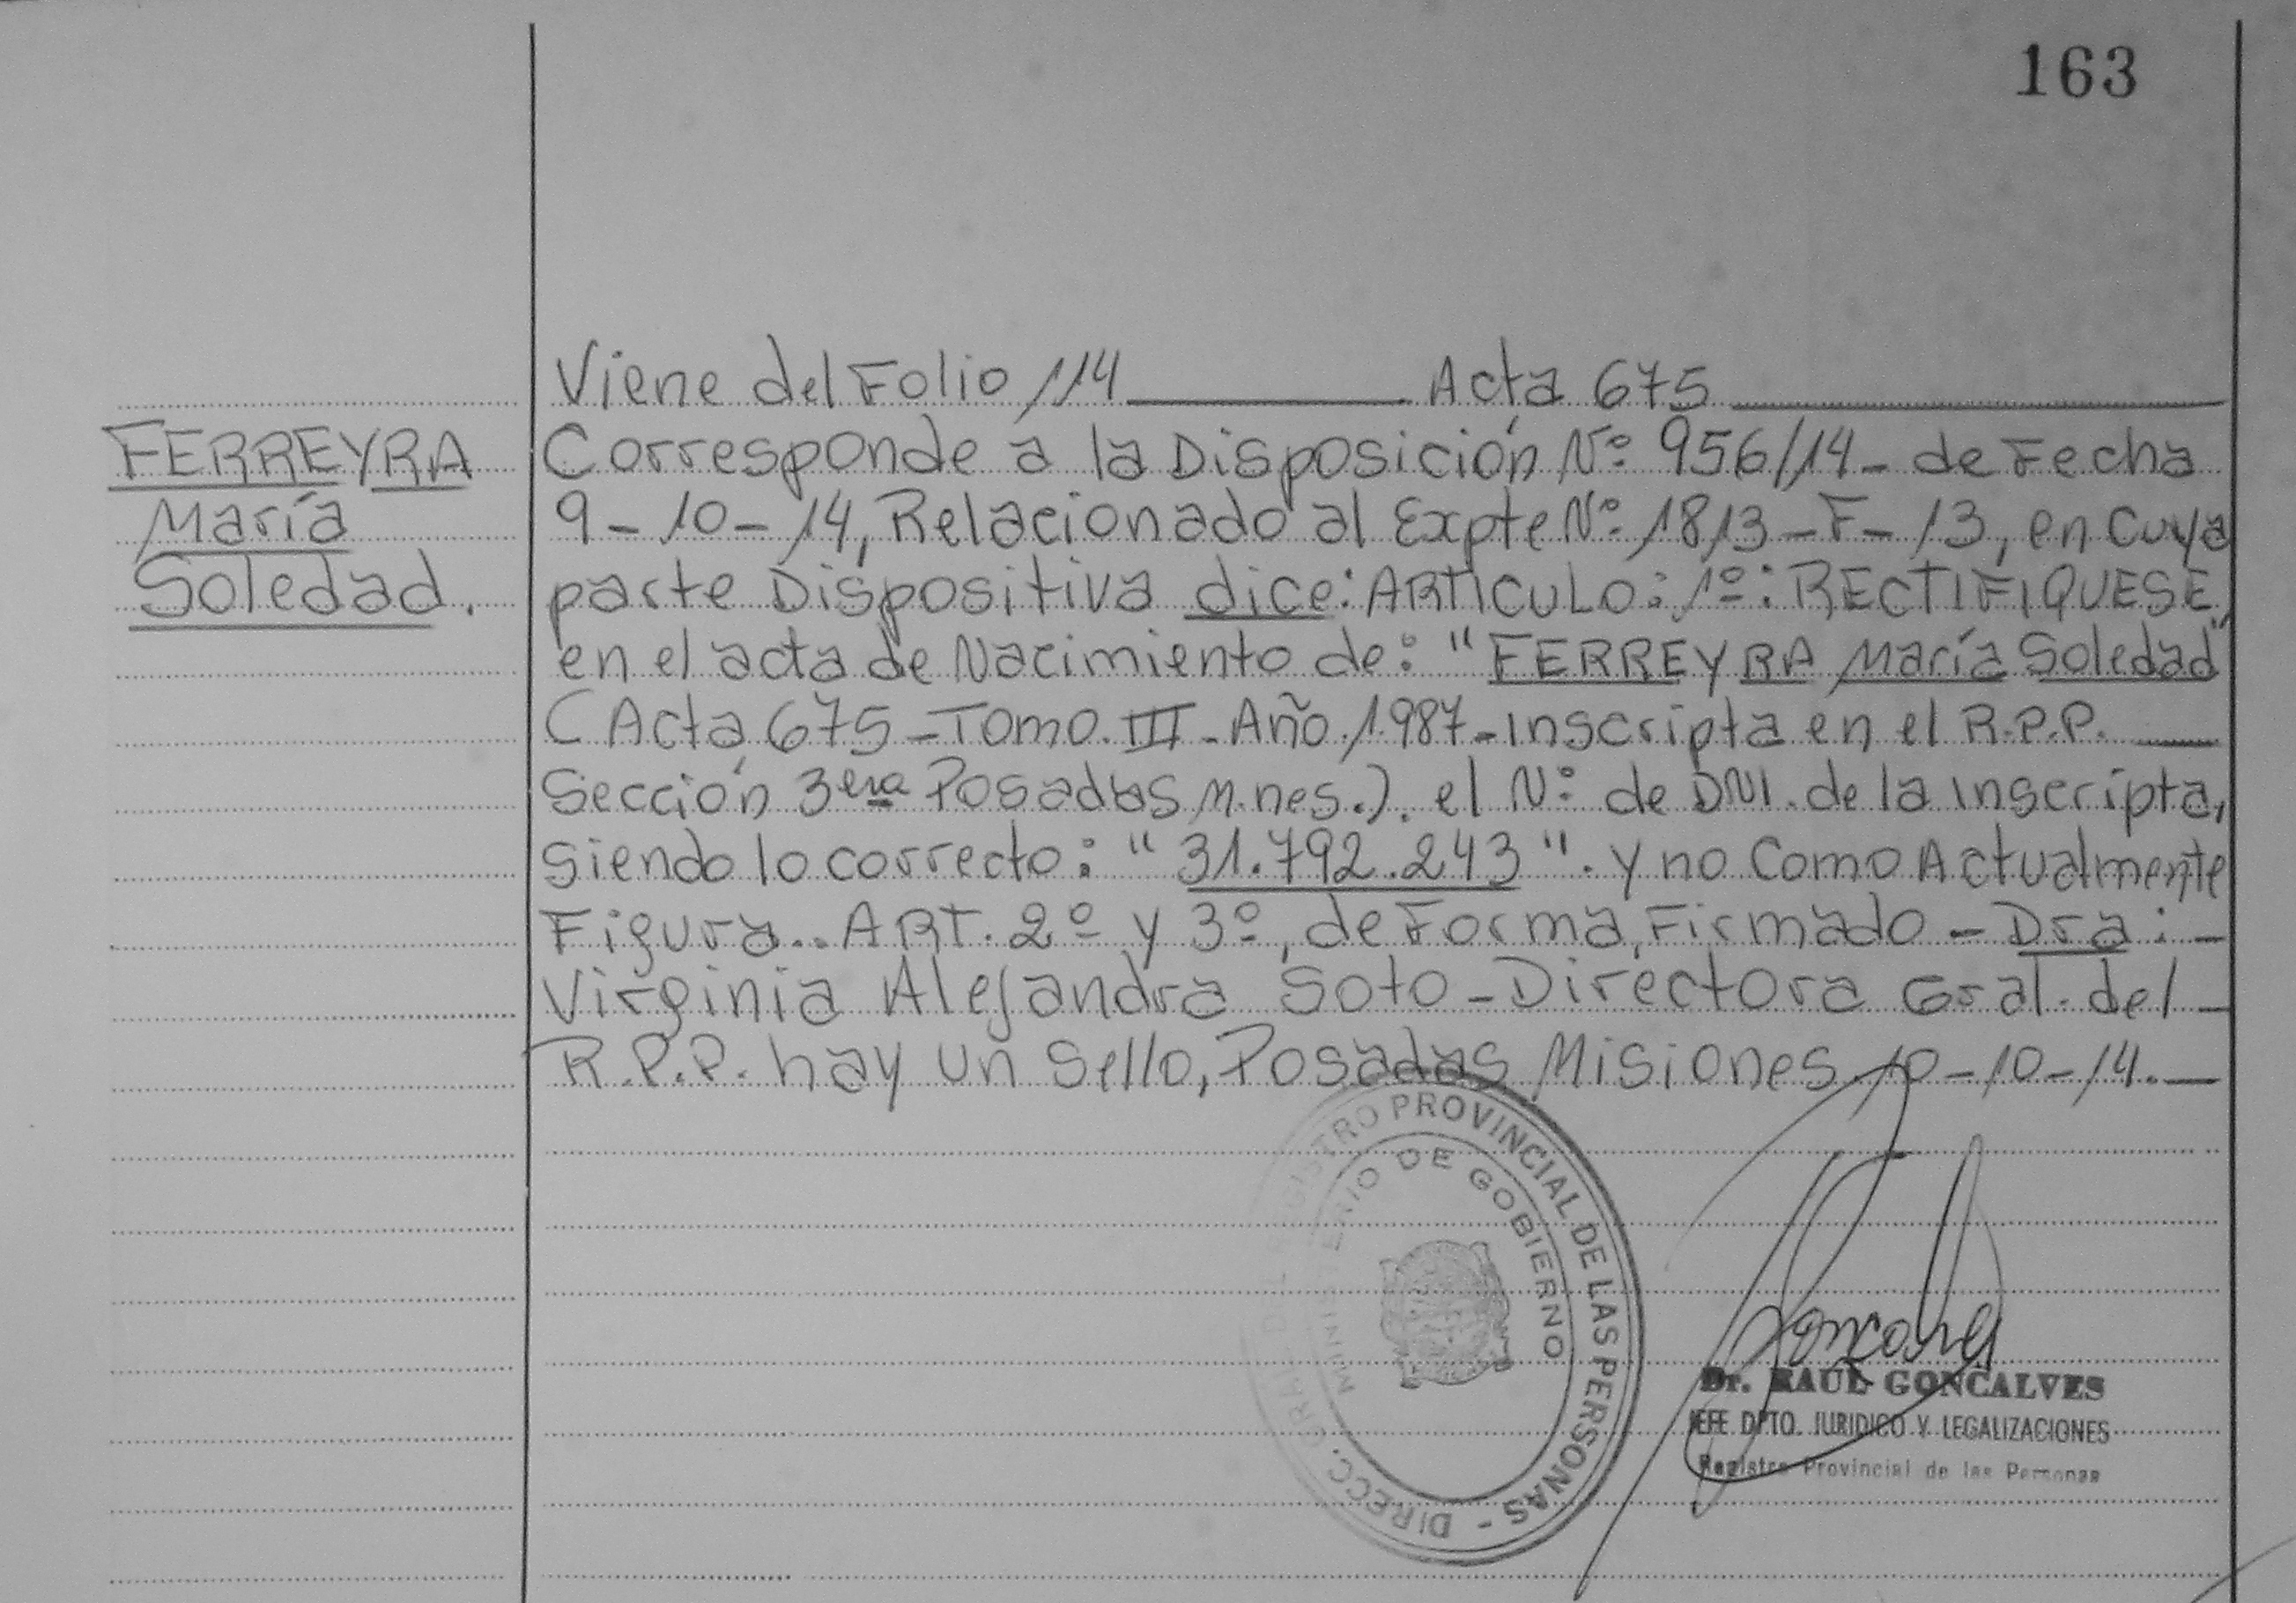 163
Viene del Folio 114 Acta 675
FERREYRA
María
Soledad.
Corresponde a la Disposición Nº 956/14- de Fecha
9-10-14, Relacionado al Expte Nº 1813-F-13, en Cuya
parte Dispositiva dice: ARTICULO: 1º: RECTIFIQUESE,
en el acta de Nacimiento de: "FERREYRA María Soledad"
(Acta 675-Tomo.III-Año.1.987-Inscripta en el R.P.P.
Sección 3era Posadas M.nes.). el Nº de DNI. de la inscripta,
Siendo lo correcto: "31.792.243". y no Como Actualmente
Figura.. ART. 2º y 3º, de Forma, Firmado - Dra: -
Virginia Alejandra Soto - Directora Gral. del -
R.P.P. hay un Sello, Posadas Misiones 10-10-14. —
DIRECC. GRAL. DEL REGISTRO PROVINCIAL DE LAS PERSONAS -
MINISTERIO DE GOBIERNO
Dr. RAUL GONCALVES
JEFE DPTO. JURIDICO Y LEGALIZACIONES
Registro Provincial de las Personas